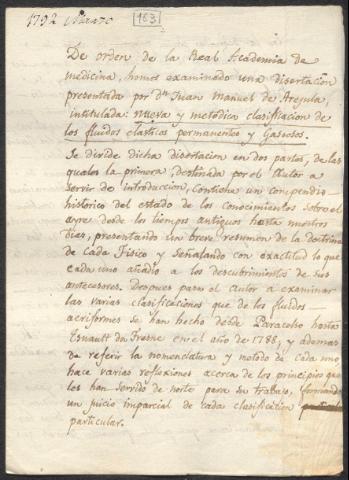 1792 Marzo
183
De orden de la Real Academia de
medicina, hemos examinado una disertacion
presentada por Dn Juan manuel de Arejula,
intitulada: nueva y metodica clasificacion de
los fluidos elasticos permanentes y Gaseosos.
Se divide dicha disertacion en dos partes, de las
quales la primera, destinada por el Autor a
servir de introduccion, contiene un compendio
historico del estado de los conocimientos sobre el
ayre desde los tiempos antiguos hasta nuestros
dias, presentando un breve resumen de la doctrina
de cada Fisico y Señalando con exactitud lo que
cada uno añadio a los descubrimientos de sus
antecesores. Despues pasa el Autor a examinar
las varias clasificaciones que de los fluidos
aeriformes se han hecho desde Paracelso hasta
du Fresne en el año de 1788, y ademas
de referir la nomenclatura y metodo de cada uno
hace varias reflexiones acerca de los principios que
les han servido de norte para su trabajo, formando
un juicio imparcial de cada clasificacion
particular.